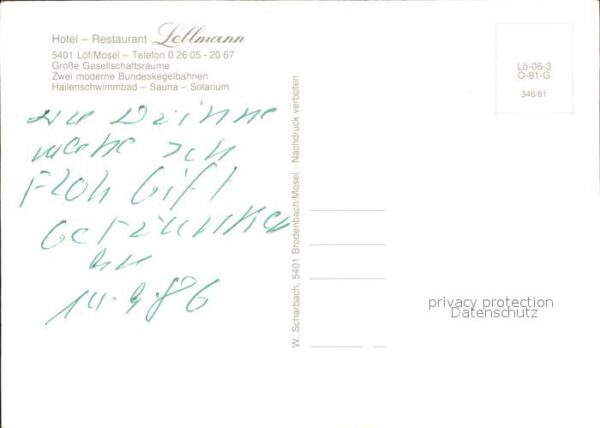 Hotel – Restaurant Lellmann
5401 Löf/Mosel – Telefon 0 26 05 - 20 67
Große Gesellschaftsräume
Zwei moderne Bundeskegelbahnen
Hallenschwimmbad – Sauna – Solarium
Lö-06-3
O-81-G
346/81
W. Scharbach, 5401 Brodenbach/Mosel · Nachdruck verboten
Floh Gift
Getrunken
14.9.86
privacy protection
Datenschutz